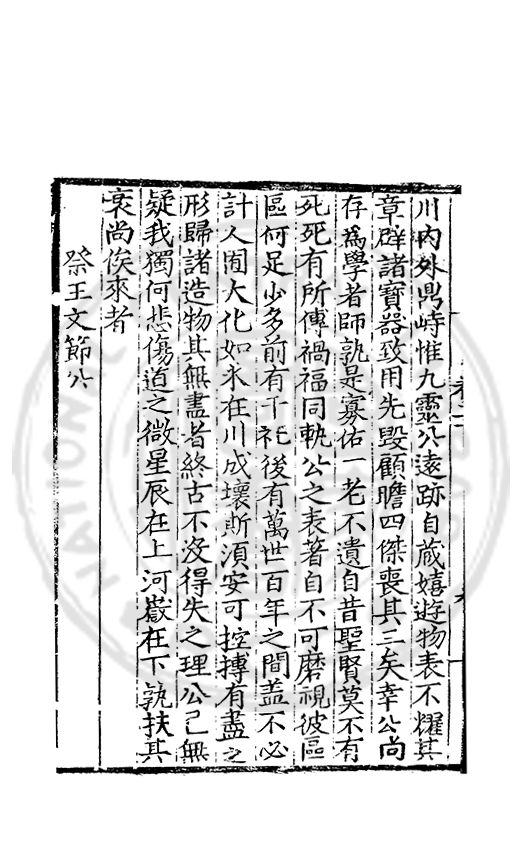 川内外鼎峙惟九靈公遠跡自藏嬉遊物表不耀其
章辟諸寶器致用先毀顧瞻四傑喪其三矣幸公尚
存為學者師孰是寡佑一老不遺自昔聖賢莫不有
死死有所傳禍福同軌公之表著自不可磨視彼區
區何足少多前有千祀後有萬世百年之間盖不必
計人閱大化如氷在川成壞斯湏安可控摶有盡之
形歸諸造物其無盡者終古不沒得失之理公已無
疑我獨何悲傷道之微星辰在上河嶽在下孰扶其
衰尚俟來者
祭王文節公